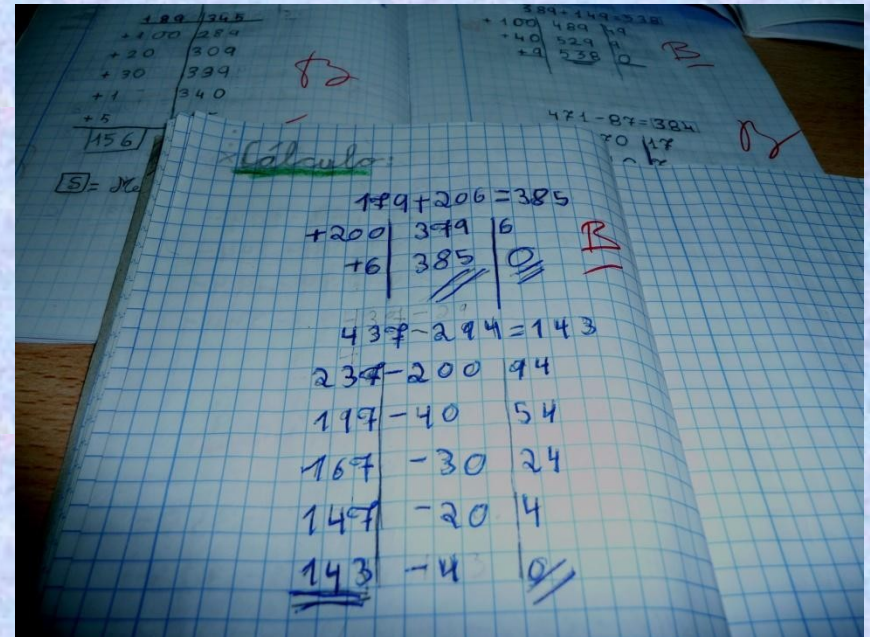 189 345
+100 289
+20 309
+30 339
+1 340
+5
156
5 =
B
389+149=538
+100 489 49
+40 529 9
+9 538 0
B
471-87=384
70 17
B
Cálculo:
179+206=385
+200 379 6
+6 385 0
B
437-294=143
237 -200 94
197 -40 54
167 -30 24
147 -20 4
143 -4 0